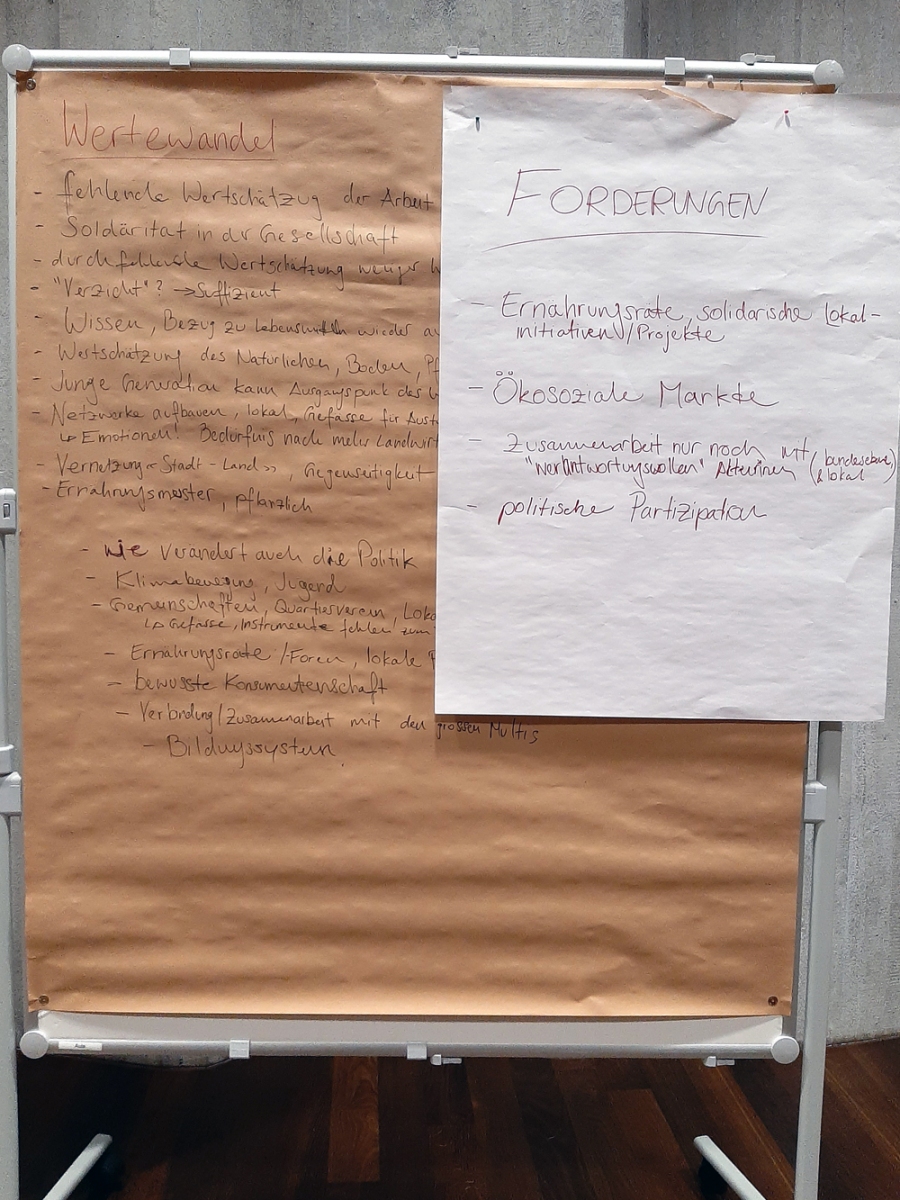 Wertewandel
- fehlende Wertschätzug der Arbeit
- Soldärität in dr Gesellschaft
- durch fehlende Wertschätzung weniger
- "Verzicht"? → Suffizient
- Wissen, Bezug zu Lebensmitteln wieder
- Wertschätzung des Natürlichen, Boden, Pf
- Junge Generation kann Ausgangspunk des
- Netzwerke aufbauen, lokal, Gefässe für Aust
↳ Emotionen! Bedürfnis nach mehr Landwirt
- Vernetzung «Stadt - Land», Gegenseitigkeit
- Ernährungsmuster, pflanzlich
- wie verändert auch die Politik
- Klimabewegung, Jugend
- Gemeinschaften, Quartiersverein, Loka
↳ Gefässe, Instrumente fehlen zum
- Ernährungsräte /-Foren, lokale
- bewusste Konsumentenschaft
- Verbindung/Zusammenarbeit mit den grossen Multis
- Bildungssystem
FORDERUNGEN
- Ernährungsräte, solidarische Lokal-
initiativen /Projekte
- Ökosoziale Märkte
- Zusammenarbeit nur noch mit
"verantwortungsvollen" Akteuren (bundesebene,
& lokal)
- politische Partizipation